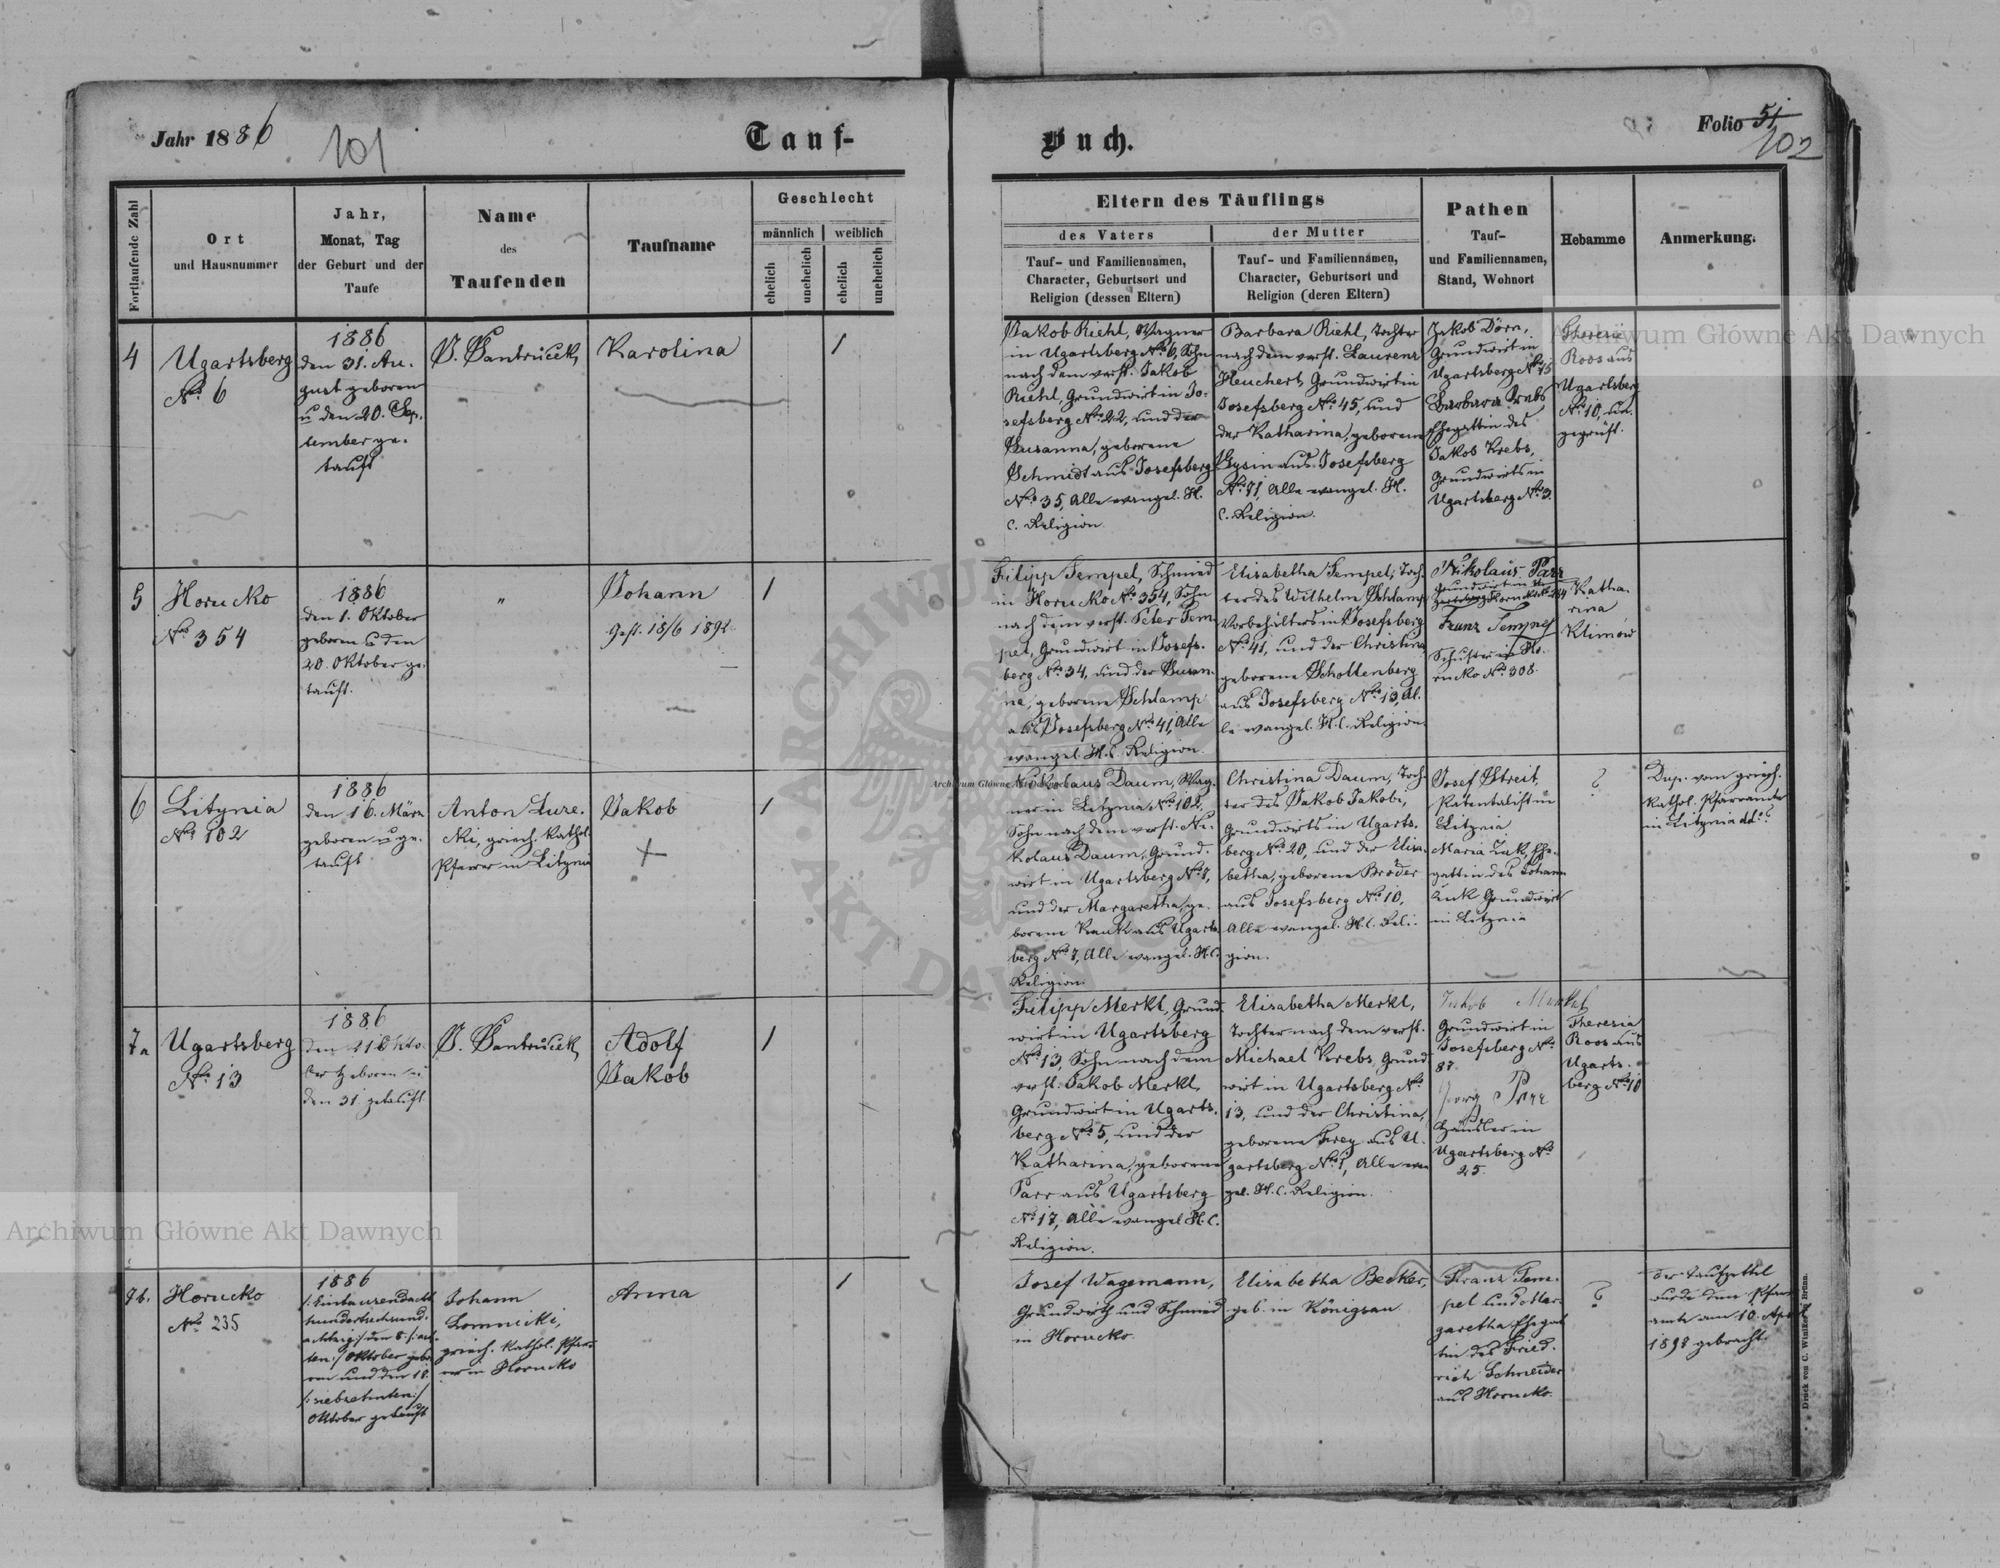 Jahr 1886
101
Tauf-
Buch.
Folio 51
102
Fortlaufende Zahl
Ort
und Hausnummer
Jahr,
Monat, Tag
der Geburt und der
Taufe
Name
des
Taufenden
Taufname
Geschlecht
männlich
weiblich
ehelich
unehelich
ehelich
unehelich
Eltern des Täuflings
des Vaters
der Mutter
Tauf- und Familiennamen,
Character, Geburtsort und
Religion (dessen Eltern)
Tauf- und Familiennamen,
Character, Geburtsort und
Religion (deren Eltern)
Pathen
Tauf-
und Familiennamen,
Stand, Wohnort
Hebamme
Anmerkung.
4
Ugartsberg
No. 6
1886
den 31. Au-
gust geboren
u den 20. Sep-
tember ge-
tauft
J. Jantuček
Karolina
1
Jakob Riehl, Wagner
in Ugartsberg No. 6, Sohn
nach dem verst. Jakob
Riehl, Grundwirt in Jo-
sefsberg No. 22, und der
Susanna, geborene
Schmidt aus Josefsberg
No. 35, Alle evangel. H.
C. Religion.
Barbara Riehl, Tochter
nach dem verst. Laurenz
Heuchert, Grundwirt in
Josefsberg No. 45, und
der Katharina, geborene
Gysin aus Josefsberg
No. 71, Alle evangel. H.
C. Religion.
Jakob Dörn,
Grundwirt in
Ugartsberg No. 15
Barbara Krebs
Ehegattin des
Jakob Krebs,
Grundwirts in
Ugartsberg No. 3.
Roos aus
Ugartsberg
No. 10, un-
geprüft.
5
Horucko
No. 354
1886
den 1. Oktober
geboren u den
20. Oktober ge-
tauft.
"
Johann
Gest. 18/6 1892
1
Filipp Tempel, Schmied
in Horucko No. 354, Sohn
nach dem verst. Peter Tem-
pel, Grundwirt in Josefs-
berg No. 34, und der Susan-
na, geborene Schlamp
aus Josefsberg No. 41, Alle
evangel. H. C. Religion.
Elisabetha Tempel, Toch-
ter des Wilhelm Schlamp
Vorbehälters in Josefsberg
No. 41, und der Christina
geborene Schottenberg
aus Josefsberg No. 13, Al-
le evangel. H. C. Religion.
Nikolaus Parr
Franz Tempel
Schuster in Ho-
rucko No. 308.
Katha-
rina
Klimów
6
Litynia
No. 102
1886
den 16. März
geboren u ge-
tauft
Anton Lure-
cki, griech. kathol.
Pfarrer in Litynia
Jakob
1
Nikolaus Daum, Wag-
ner in Litynia No. 102,
Sohn nach dem verst. Ni-
kolaus Daum, Grund-
wirt in Ugartsberg No. 7,
und der Margaretha, ge-
borene Kauk aus Ugarts-
berg No. 7, Alle evangel. H. C.
Religion.
Christina Daum, Toch-
ter des Jakob Jakobi,
Grundwirts in Ugarts-
berg No. 20, und der Elisa-
betha, geborene Bröder
aus Josefsberg No. 10,
Alle evangel. H. C. Reli-
gion.
Josef Streit
Litynia
Ehe-
gattin des Johann
Grundwirt
in Litynia
?
Dup. vom griech.
kathol. Pfarramte
in Litynia
7a
Ugartsberg
No. 13
1886
den 21 Okto-
ber geboren u
den 31. getauft
J. Jantuček
Adolf
Jakob
1
Filipp Merkl, Grund-
wirt in Ugartsberg
No. 13, Sohn nach dem
verst. Jakob Merkl,
Grundwirt in Ugarts-
berg No. 5, und der
Katharina, geborene
Parr aus Ugartsberg
No. 17, Alle evangel. H. C.
Religion.
Elisabetha Merkl,
Tochter nach dem verst.
Michael Krebs, Grund-
wirt in Ugartsberg No.
13, und der Christina,
geborene Frey aus U-
gartsberg No. 1, Alle evan-
gel. H. C. Religion.
Jakob Merkel
Grundwirt in
Josefsberg No.
87
Georg Parr
Häusler in
Ugartsberg No.
25.
Theresia
Roos aus
Ugarts-
berg No. 10
7b.
Horucko
No. 235
1886
/:Eintausendacht-
hundertsechsund-
achtzig:/ den 8 /:ach-
ten:/ Oktober gebo-
ren und den 18.
/:siebzehnten:/
Oktober getauft
Johann
Lomnicki,
griech. kathol. Pfar-
rer in Horucko
Anna
1
Josef Wagemann,
Grundwirth und Schmied
in Horucko
Elisabetha Becker,
geb. in Königsau
Franz Tem-
pel und Mar-
garetha Ehegat-
tin des Fried-
rich Schneider
aus Horucko.
?
Der Taufzettel
wurde dem Pfarr-
amte am 10. April
1898 gebracht.
Druck von C. Winiker, Brünn.
Archiwum Główne Akt Dawnych
Archiwum Główne Akt Dawnych
Archiwum Główne Akt Dawnych